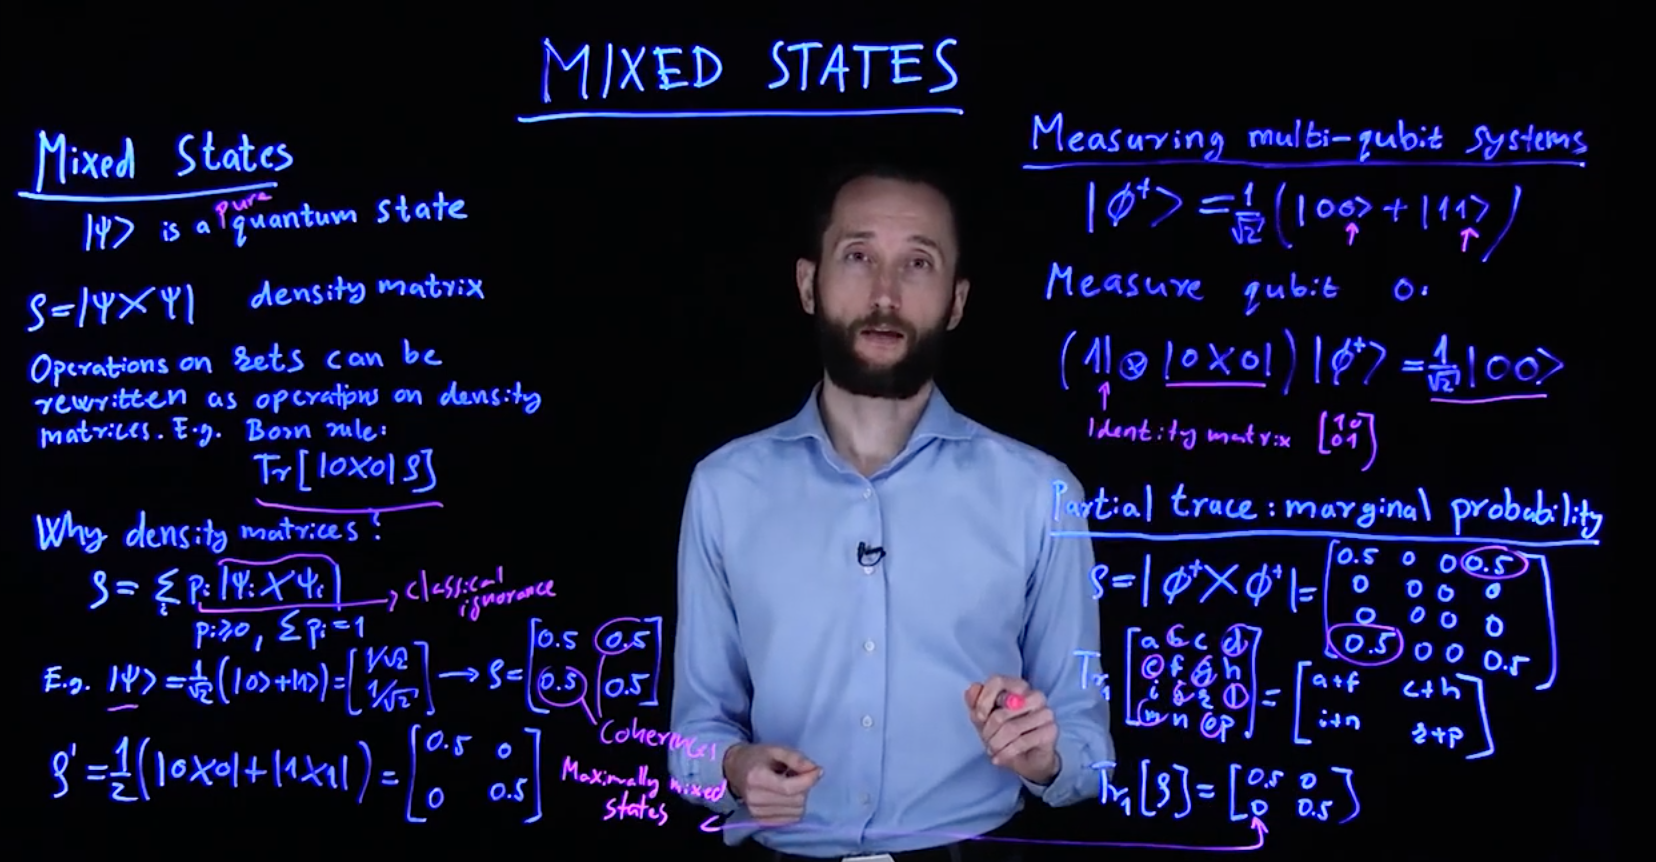 MIXED STATES
Mixed States
|Ψ> is a pure quantum state
ρ=|Ψ><Ψ| density matrix
Operations on kets can be
rewritten as operations on density
matrices. E.g. Born rule:
Tr[|0><0|ρ]
Why density matrices?
ρ = Σ_i p_i |Ψ_i><Ψ_i| → classical
ignorance
p_i≥0, Σ p_i = 1
E.g. |Ψ> = 1/√2 (|0>+|1>) = [1/√2 1/√2] → ρ = [0.5 0.5
0.5 0.5]
Coherences
ρ' = 1/2 (|0><0|+|1><1|) = [0.5 0
0 0.5]
Maximally mixed
states
Measuring multi-qubit systems
|ϕ⁺> = 1/√2 (|00> + |11>)
Measure qubit 0.
(1| ⊗ |0><0|) |ϕ⁺> = 1/√2 |00>
Identity matrix [1 0
0 1]
Partial trace: marginal probability
ρ = |ϕ⁺><ϕ⁺| = [0.5 0 0 0.5
0 0 0 0
0 0 0 0
0.5 0 0 0.5]
Tr₁ [a b c d
e f g h
i j k l
m n o p] = [a+f c+h
i+n k+p]
Tr₁[ρ] = [0.5 0
0 0.5]